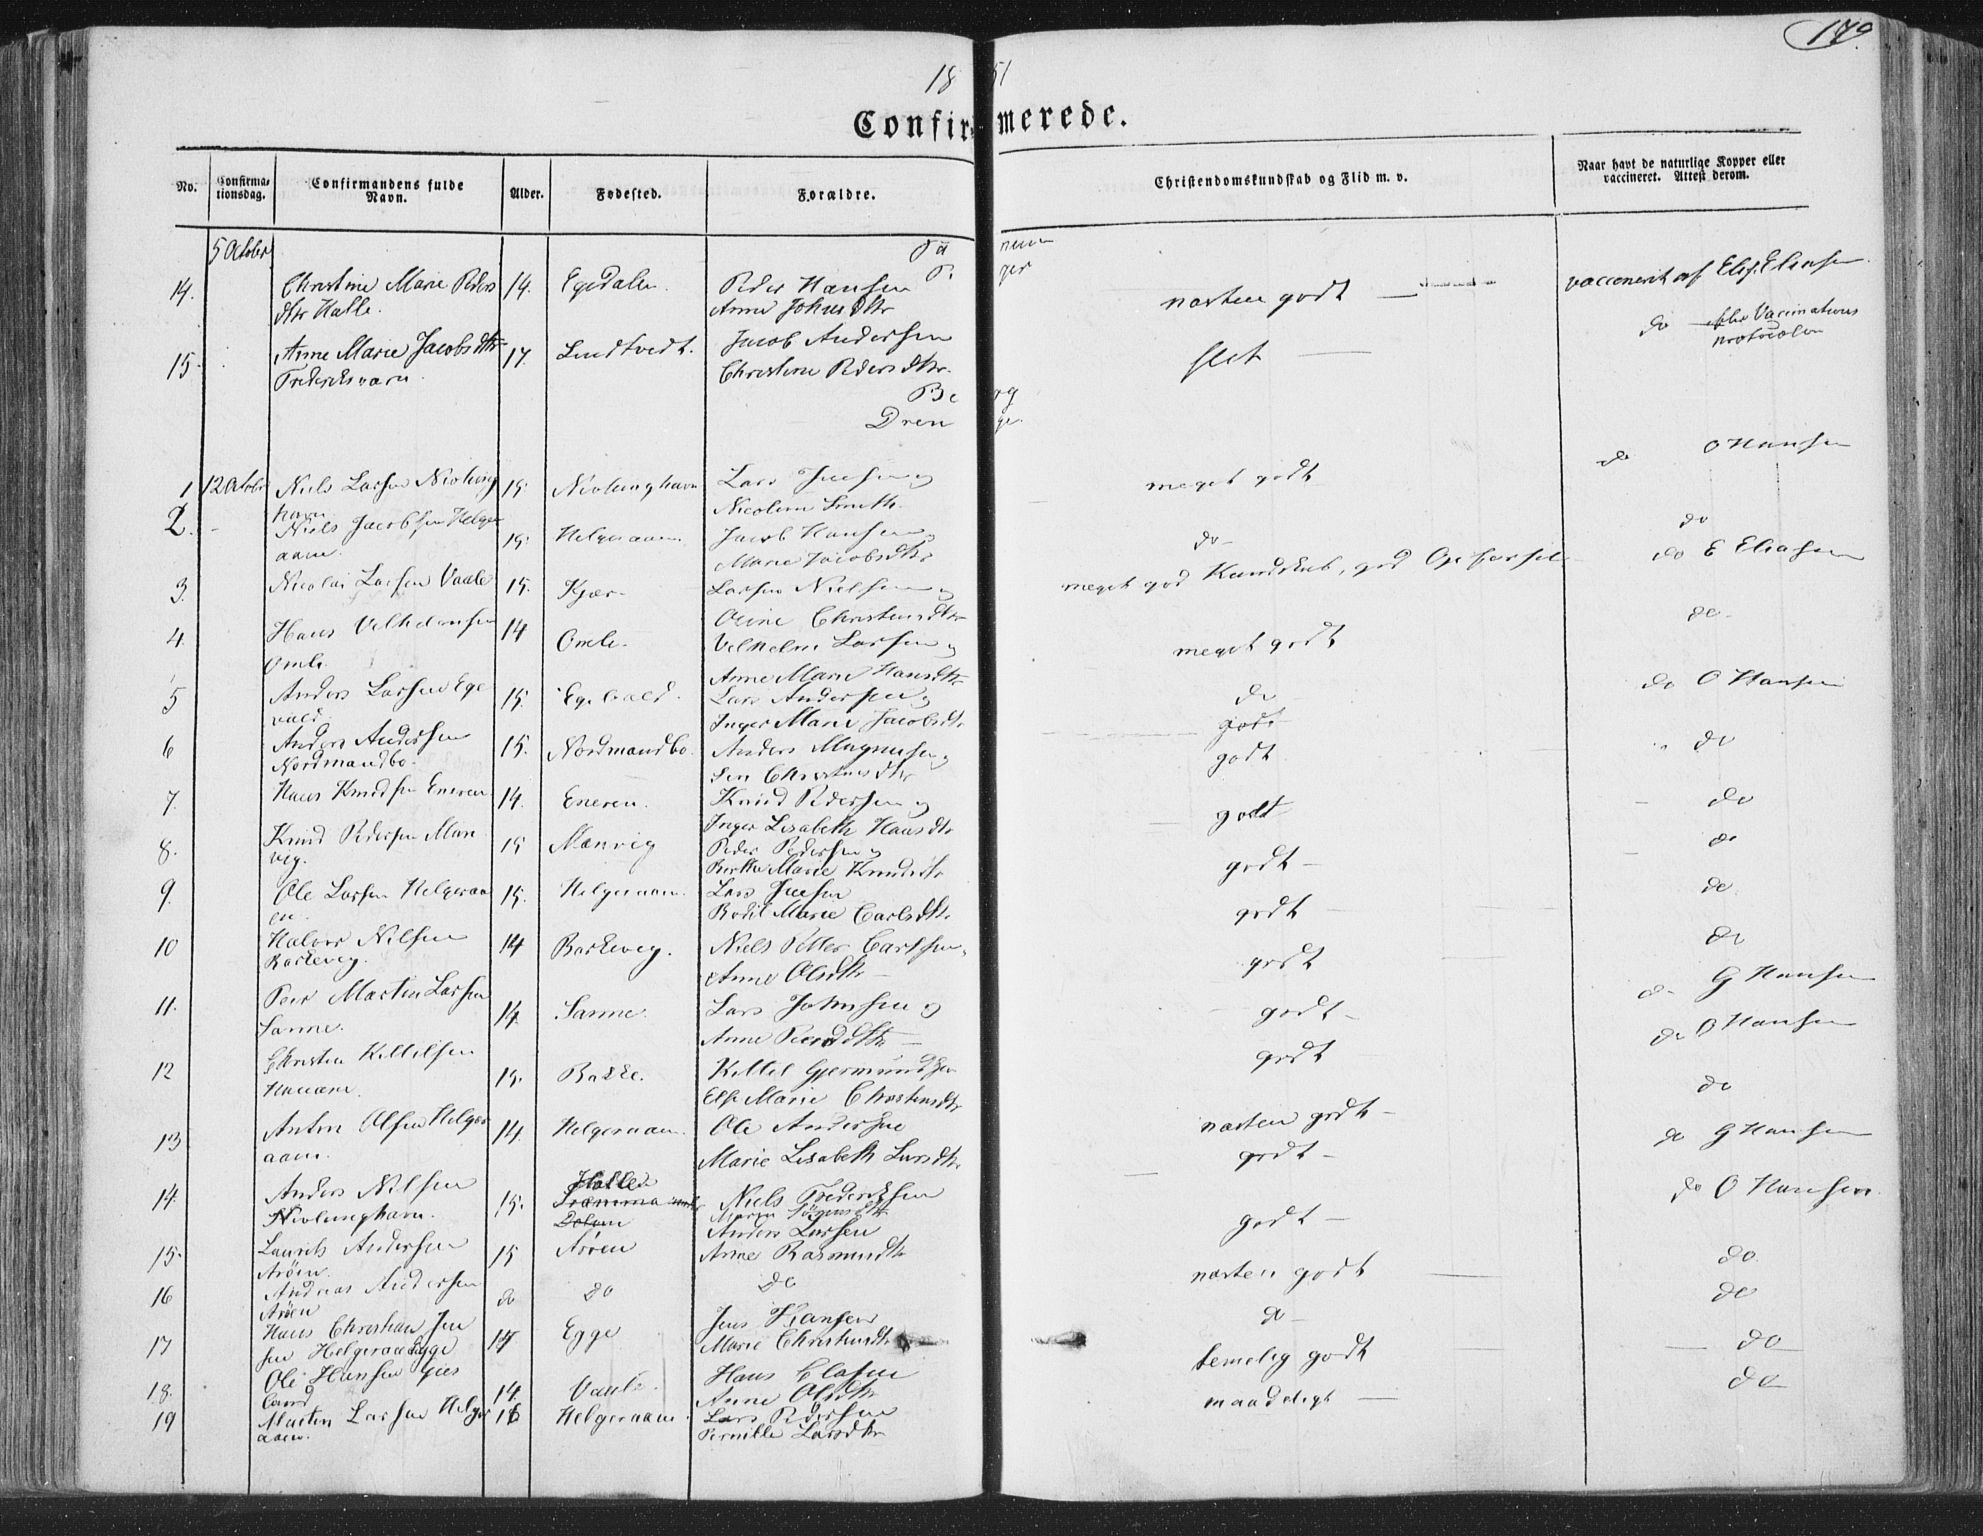 179.
18 51
Confirmerede.
No.
Confirma-
tionsdag.
Confirmandens fulde
Navn.
Alder.
Fødested.
Forældre.
Christendomskundskab og Flid m. v.
Naar havt de naturlige Kopper eller
vaccineret. Attest derom.
5 Octobr
14. Christine Marie Peders 14. Egedalen. Peder Hansen næsten godt — vaccineret af
dtr Halle. Anne Johnsdtr
15. Anne Marie Jacobsdtr 17. Lundtvedt. Jacob Andersen slet — do Vaccinations
Frederiksværn. Christine Pedersdtr. protocolen
1 12 Octobr Niels Larsen Nevlung 15. Nevlunghavn Lars Jensen og meget godt do O Hansen
havn Nicoline Smith.
2. - Niels Jacobsen Helger 15. Helgeraaen. Jacob Hansen og do- do
aaen. Marie Jacobsdtr
3. Nicolai Larsen Vaale 15. Kjær- Larsen Nielsen og meget god Kundskab, god do E Eliasen
Oline Christensdtr
4. Hans Velhelmsen 14 Omle. Velhelm Larsen og meget godt do-
Omle. Anne Marie Hansdtr
5 Anders Larsen Ege 15. Egevald. Lars Andersen og do do O Hansen
vald Inger Marie Jacobsdtr godt
6 Anders Andersen 15. Nordmandbo. Anders Magnusen og godt do
Nordmandbo. Christensdtr
7. Hans Knudsen Eneren 14. Eneren. Knud Pedersen og godt do
Inger Lisabeth Hansdtr
8. Knud Pedersen Man 15 Manvig Peder Pedersen og godt - do
vig. Berthe Marie Knudsdtr
9. Ole Larsen Helgeraa 15. Helgeraaen. Lars Jensen godt - do
en. Bodil Marie Carlsdtr
10 Halvor Nilsen 14 Barkevig. Niels Petter Carlsen godt do
Barkevig. Anne Olsdtr -
11. Peer Martin Larsen 14. Sanne. Lars Johnsen og godt - do G Hansen
Sanne. Anne
12 Christen Kittilsen 15. Bakke. Kittel Gjermundsen godt do O Hansen
Elsе Marie Christensdtr do
13 Anton Olsen Helger 14. Helgeraaen. Ole Andersen næsten godt - do G Hansen
aaen. Marie Lisabeth Larsdtr godt -
14. Anders Nilsen 15. Halle Niels Frederiksen godt - do O Hansen.
Nevlunghavn. Maren
15. Laurits Andersen 15 Arøen Anders Larsen næsten godt do
Arøen. Anne Rasmusdtr
16 Andreas Andersen do do do do- do
Arøen
17 Hans Christian Jen 14 Egge Jens Hansen temelig godt do
sen Helgeraa Egge Marie Christensdtr
18. Ole Hansen 14. Vaale. Hans Olasen maadeligt — do
land Anne Olsdtr
19 Martin Larsen Helger 16 Helgeraaen. Lars Pedersen
aaen. Pernille Larsdtr